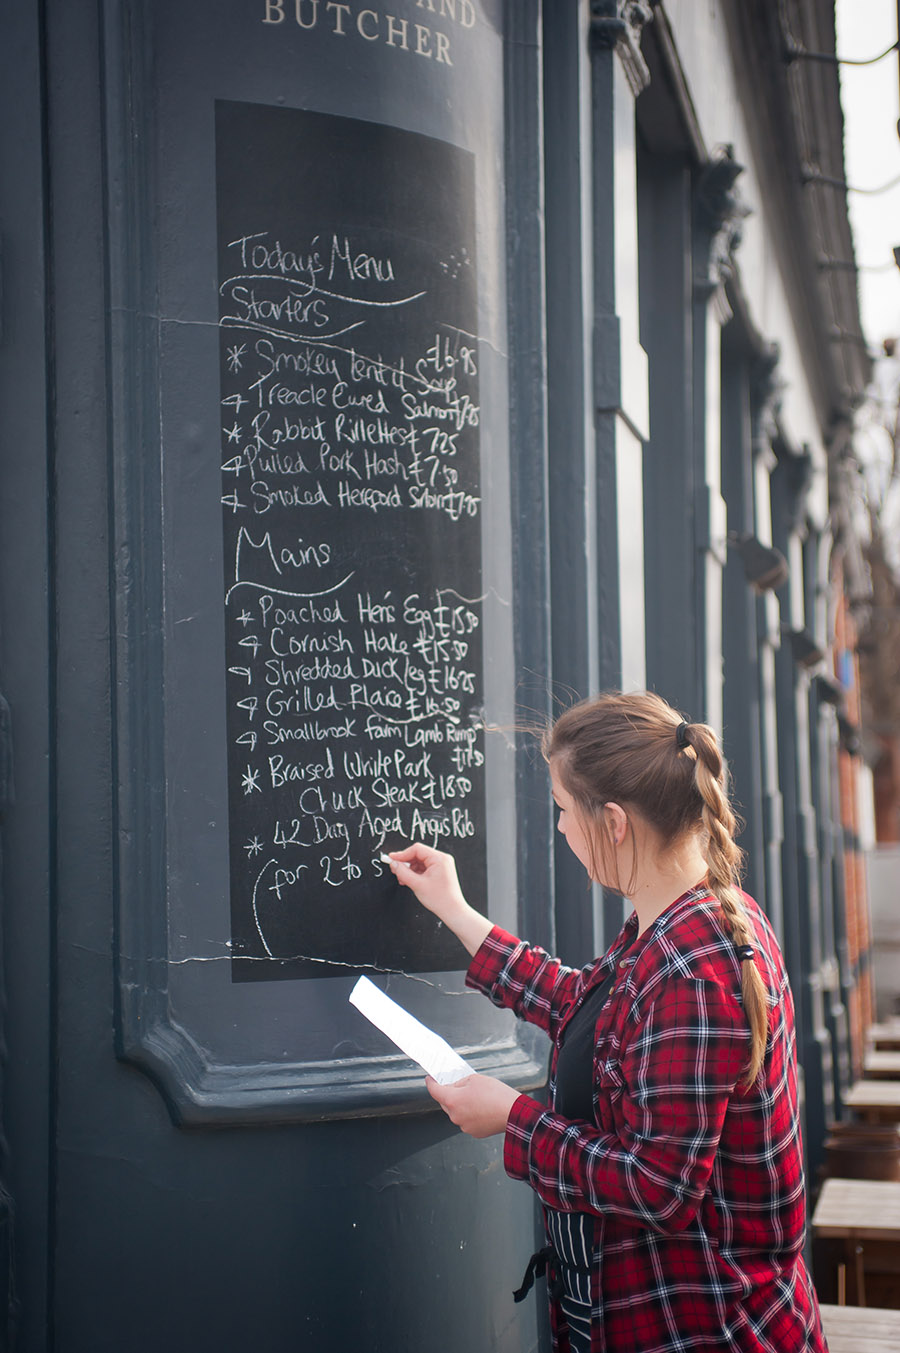 AND
BUTCHER
Today's Menu
Starters
* Smokey Lentil Soup £6.95
Treacle Cured Salmon £7.25
* Rabbit Rillettes £7.25
Pulled Pork Hash £7.50
Smoked Hereford Sirloin £7.25
Mains
* Poached Hen's Egg £15.50
Cornish Hake £15.50
Shredded Duck leg £16.25
Grilled Plaice £16.50
Smallbrook Farm Lamb Rump £17.50
* Braised White Park
Chuck Steak £18.50
* 42 Day Aged Angus Rib
(for 2 to s